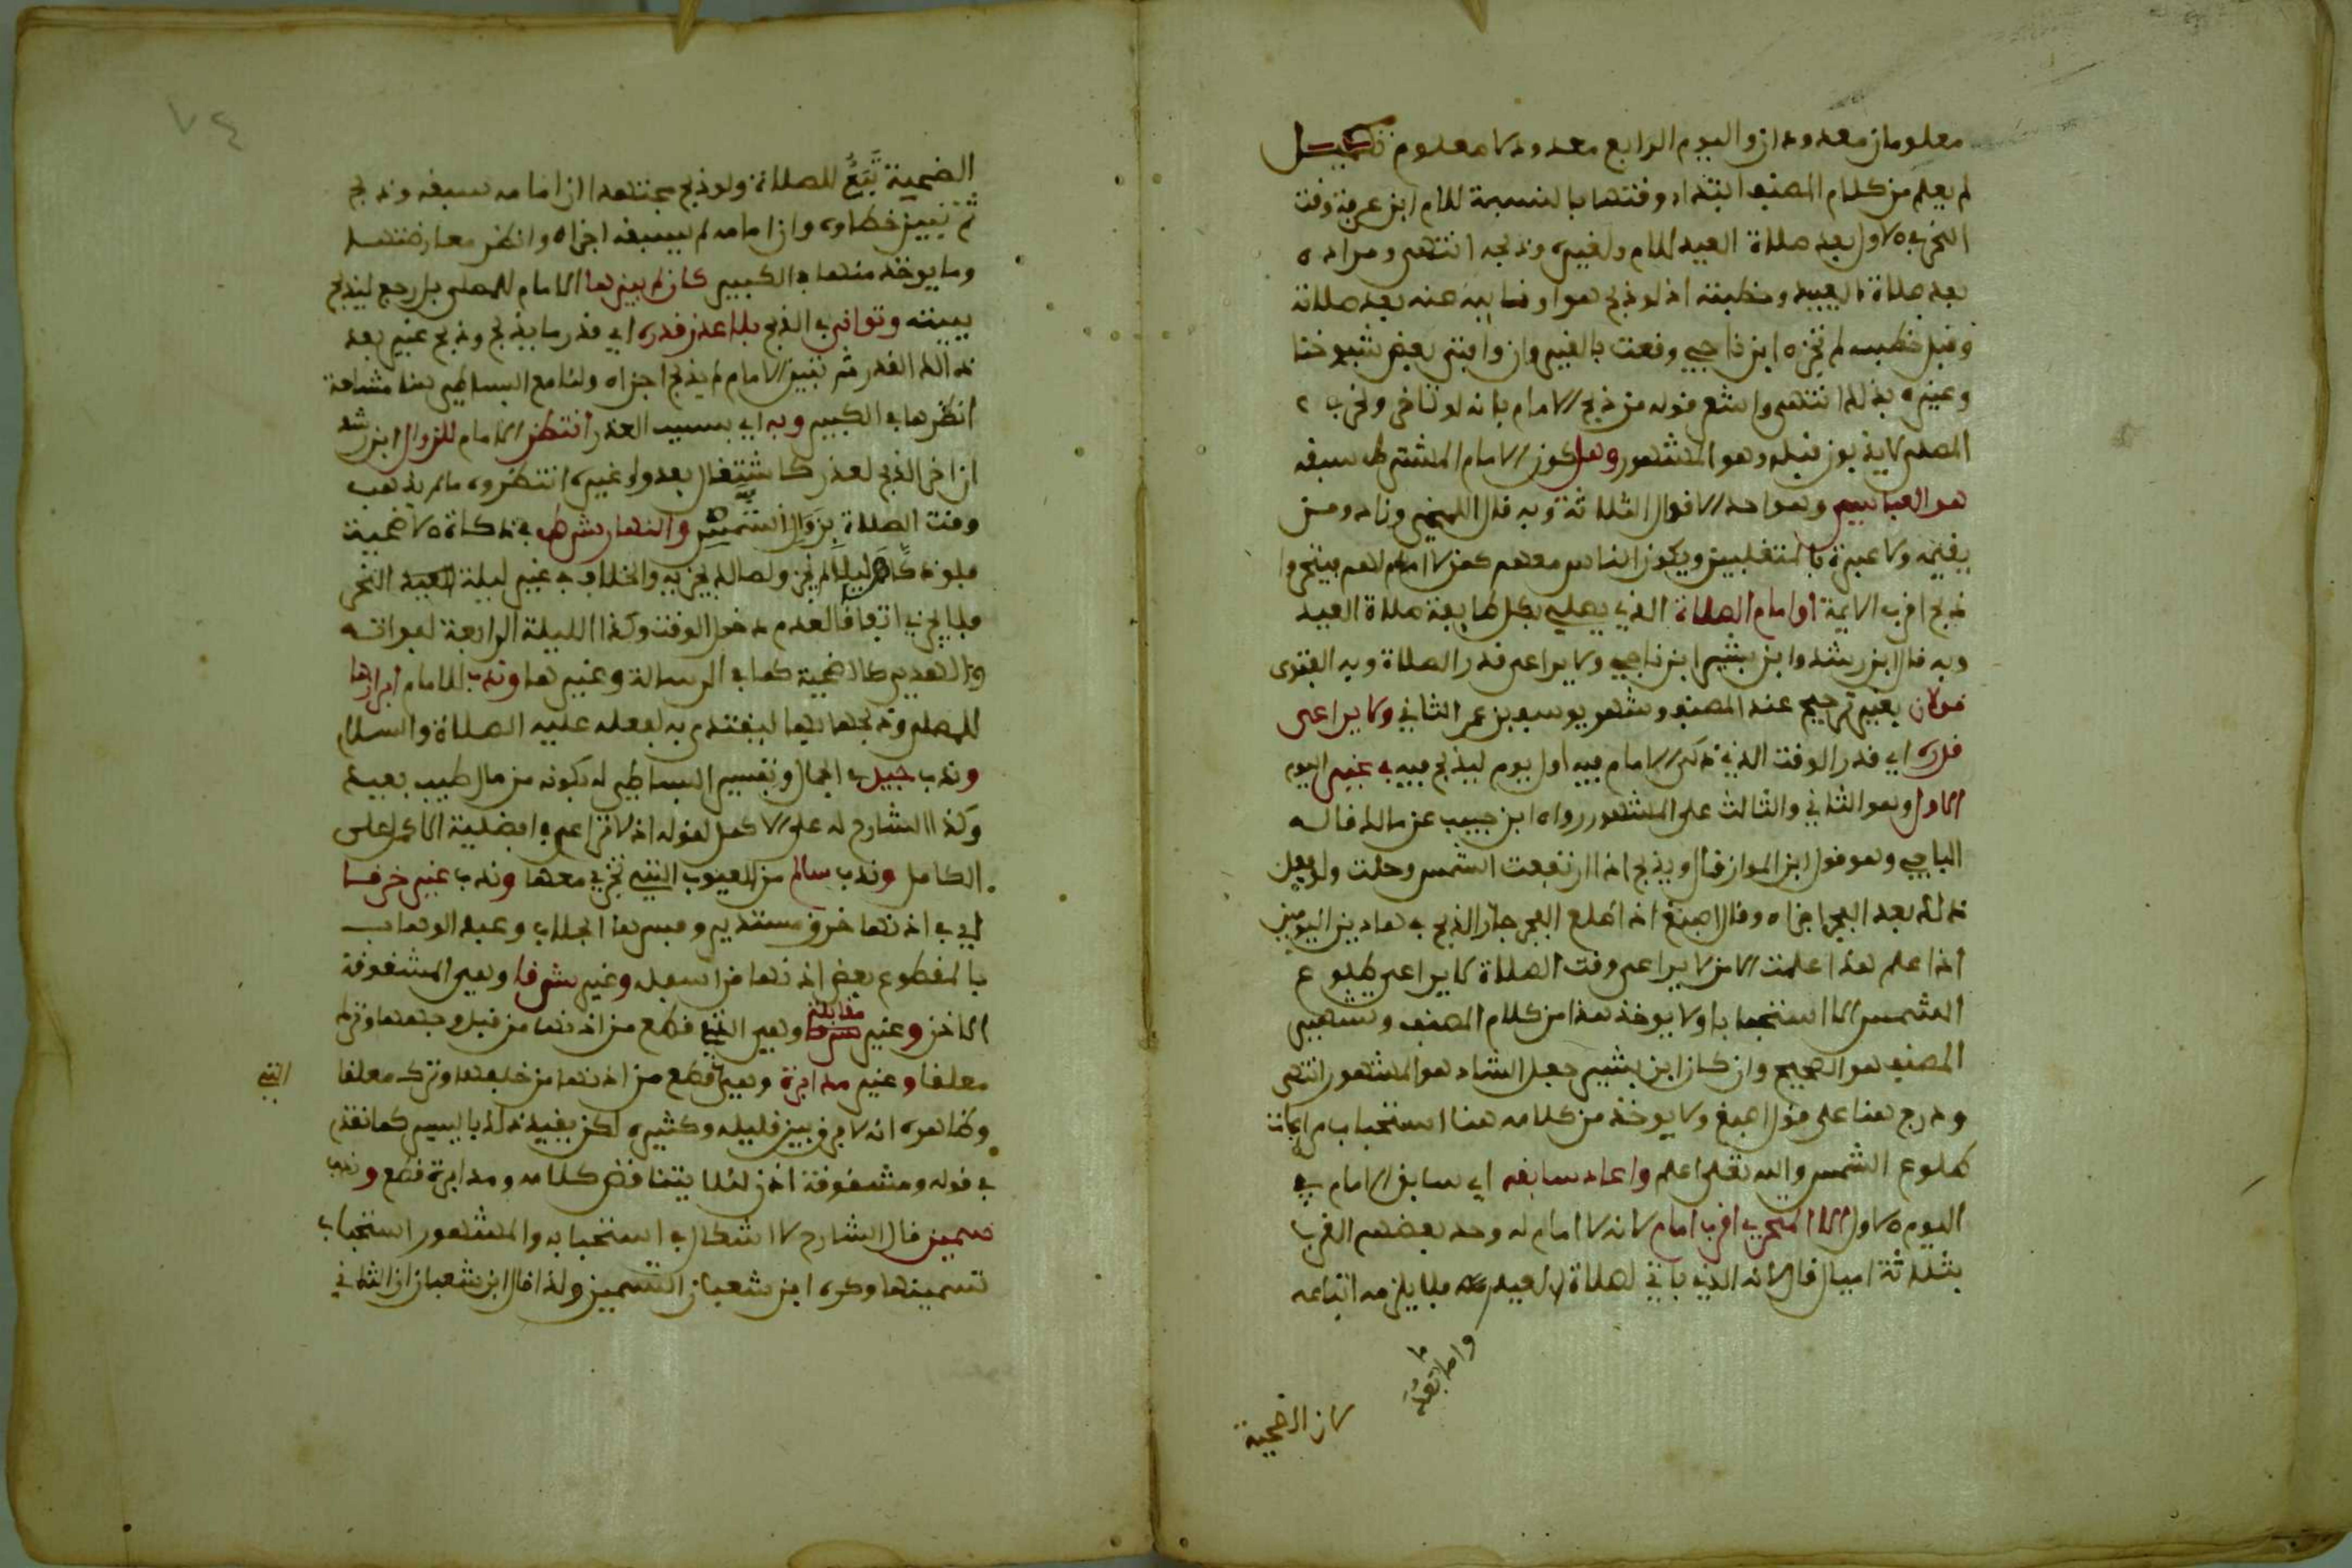 معلومان معدودان واليوم الرابع معدود لا معلوم تكميل
لم يعلم من كلام المصنف ابتداء وقتها بالنسبة للامام ابن عرفة وقت
الذبح في الاول بعد صلاة العيد للامام ولغيره وذبحه انتهى ومراده
بعد صلاة العيد وخطبته اذ لو ذبح هو او نائبه عنه بعد صلاته
وقبل خطبته لم تجزه ابن ناجي وقعت بالقيروان وافتى بعض شيوخنا
وغيره بذلك انتهى واشعر قوله من ذبح الامام بانه لو تاخر
المصلى لا يذبحون قبله وهو المشهور وهل كون الامام المشترط سبقه
هو العباسي وهو احد الاقوال الثلاثة وبه قال اللخمي وزاد ومن
يقيمه ولا عبرة بالمتغلبين ويكون الناس معهم كمن لا امام لهم فيتحروا
ذبح اقرب الايمة او امام الصلاة الذي يصلي بكل طايفة صلاة العيد
وبه قال ابن رشد وابن بشير ابن ناجي ولا يراعى قدر الصلاة وبه الفتوى
قولان بغير ترجيح عند المصنف وشهر يوسف بن عمر الثاني ولا يراعى
قدره اي قدر الوقت الذي ذكى الامام فيه اول يوم ليذبح فيه في غير اليوم
الاول وهو الثاني والثالث على المشهور رواه ابن حبيب عن مالك قاله
الباجي وهو قول ابن المواز قال ويذبح اذا ارتفعت الشمس وحلت ولو فعل
ذلك بعد الفجر اجزاه وقال اصبغ اذا طلع الفجر جاز الذبح في هاذين اليومين
اذا علم هذا علمت الا من لا يراعى وقت الصلاة لا يراعى طلوع
الشمس الا استحبابا ولا يوخذ هذا من كلام المصنف وتشهير
المصنف هو الصحيح وان كان ابن بشير جعل الشاذ هو المشهور انتهى
ودرج هنا على قول اصبغ ولا يوخذ من كلامه هنا استحباب مراعات
طلوع الشمس والله تعلى اعلم واعاد سابقه اي سابق الامام في
اليوم الاول الا المتحري اقرب امام لانه لا امام له وحد بعضهم القرب
بثلاثة اميال قال لانه الذي ياتي لصلاة العيد فلا يلزمه اتباعه
واما بعد
لان الاضحية
٧٤
الضحية تبع للصلاة ولو ذبح مجتهدا ان امامه سبقه وذبح
ثم تبين خطاوه وان امامه لم يسبقه اجزاه وانظر معارضتها
وما يوخذ منها في الكبير كان لم يبرزها الامام للمصلى بل رجع ليذبح
ببيته وتوانى في الذبح بلا عذر قدره اي قدر ما يذبح وذبح غيره بعد
ذالك القدر ثم تبين الامام لم يذبح اجزاه ولنا مع البساطي هنا مشاحة
انظرها في الكبير وبه اي بسبب العذر انتظر الامام للزوال ابن رشد
ان اخر الذبح لعذر كاشتغال بعدو او غيره انتظروه ما لم يذهب
وقت الصلاة بزوال الشمس والنهار شرط في ذكاة الاضحية
فلو ذكاها ليلا لم يجز ولمالك يجزيه والخلاف في غير ليلة العيد النحر
فلا يجزي اتفاقا لعدم دخول الوقت وكذا الليلة الرابعة لفواته
والهدي كالاضحية كما في الرسالة وغيرها وندب للامام ابرازها
للمصلى وذبحها فيها ليقتدى به لفعله عليه الصلاة والسلام
وندب جيد في الجمال وتفسير البساطي له بكونه من مال طيب بعيد
وكذا الشارح له على الاكمل لقوله اذ لا نزاع في افضلية الاكمل على
الكامل وندب سالم من العيوب التي تجزي معها وندب غير خرقا
اي في اذنها خرق مستدير وفسرها الجلاب وعبد الوهاب
بالمقطوع بعض اذنها من اسفله وغير شرقا وهي المشقوقة
الاذن وغير مقابلة وهي التي قطع من اذنها من قبل وجهها وترك
معلقا وغير مدابرة وهي قطع من اذنها من خلفها وترك معلقا
التي
وظاهره انه لا فرق بين قليله وكثيره لكن يقيد ذلك باليسير كما تقدم
في قوله ومشقوقة اذن لئلا يتناقض كلامه ومدابرة قطع وندب
سمين قال الشارح لا اشكال في استحبابه والمشهور استحباب
تسمينها وكره ابن شعبان التسمين ولذا قال ابن شعبان ان الثاني